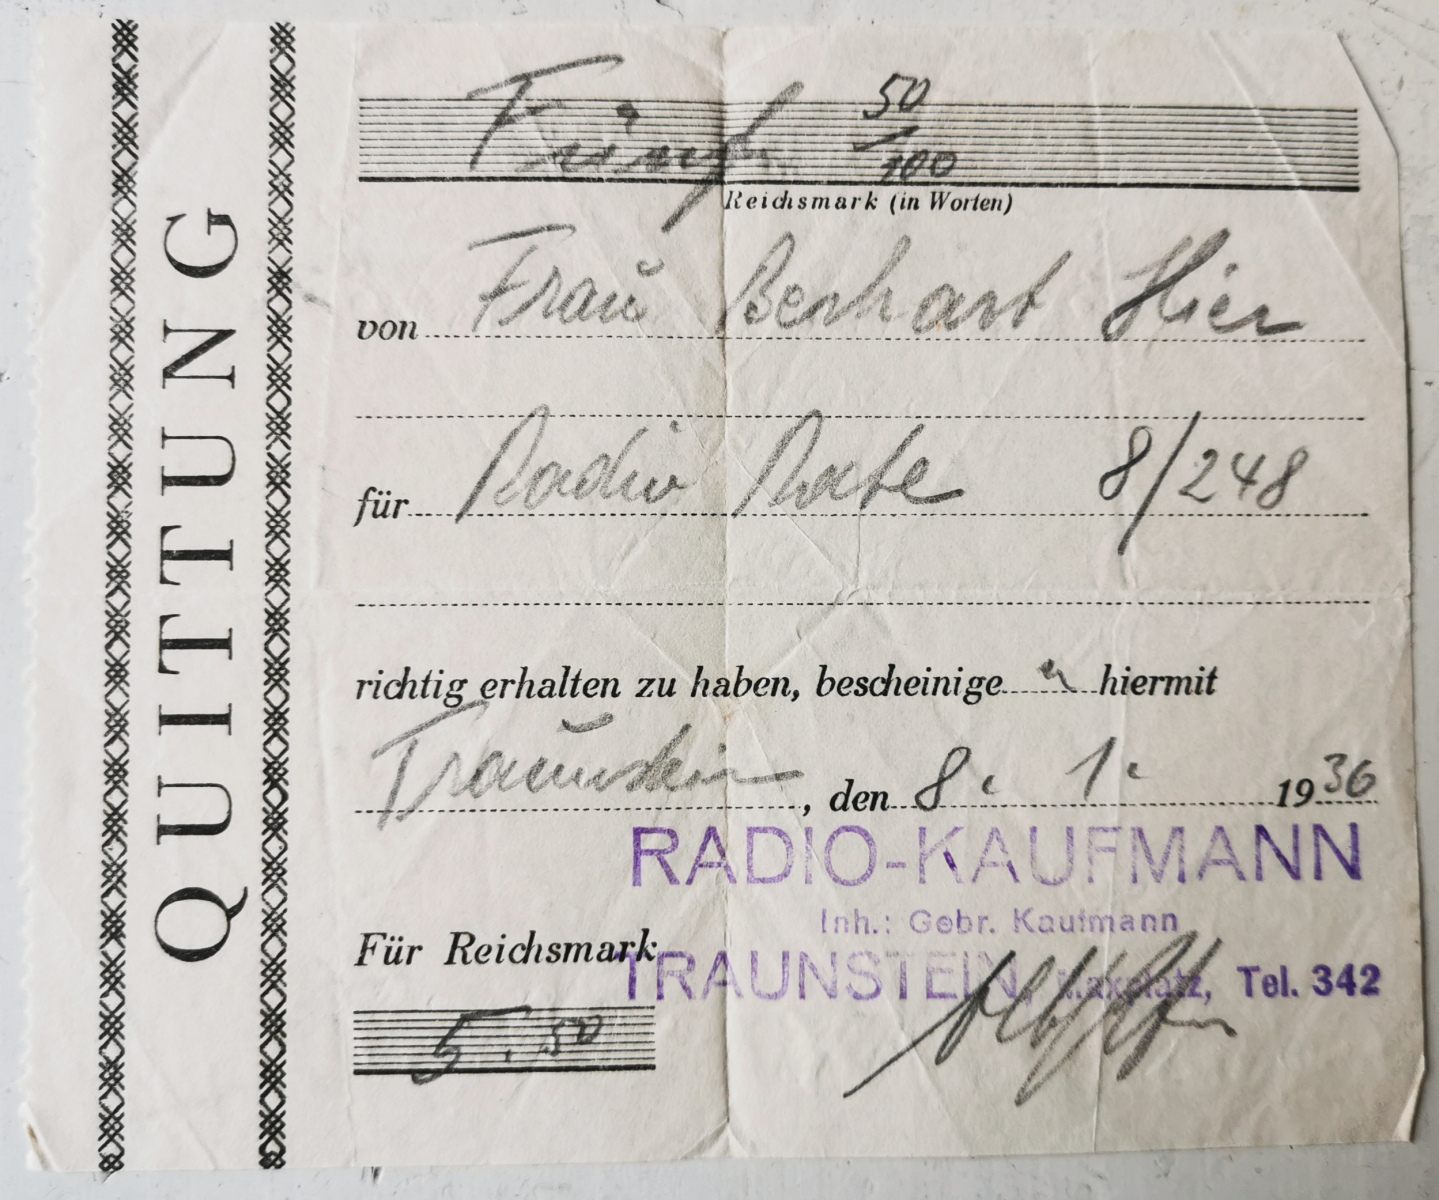 QUITTUNG
Fünf 50/100
Reichsmark (in Worten)
von Frau Berhart Hier
für Radio Rate 8/248
richtig erhalten zu haben, bescheinige n hiermit
Traunstein, den 8. 1. 1936
RADIO-KAUFMANN
Inh.: Gebr. Kaufmann
Für Reichsmark
TRAUNSTEIN, Maxplatz, Tel. 342
5.50